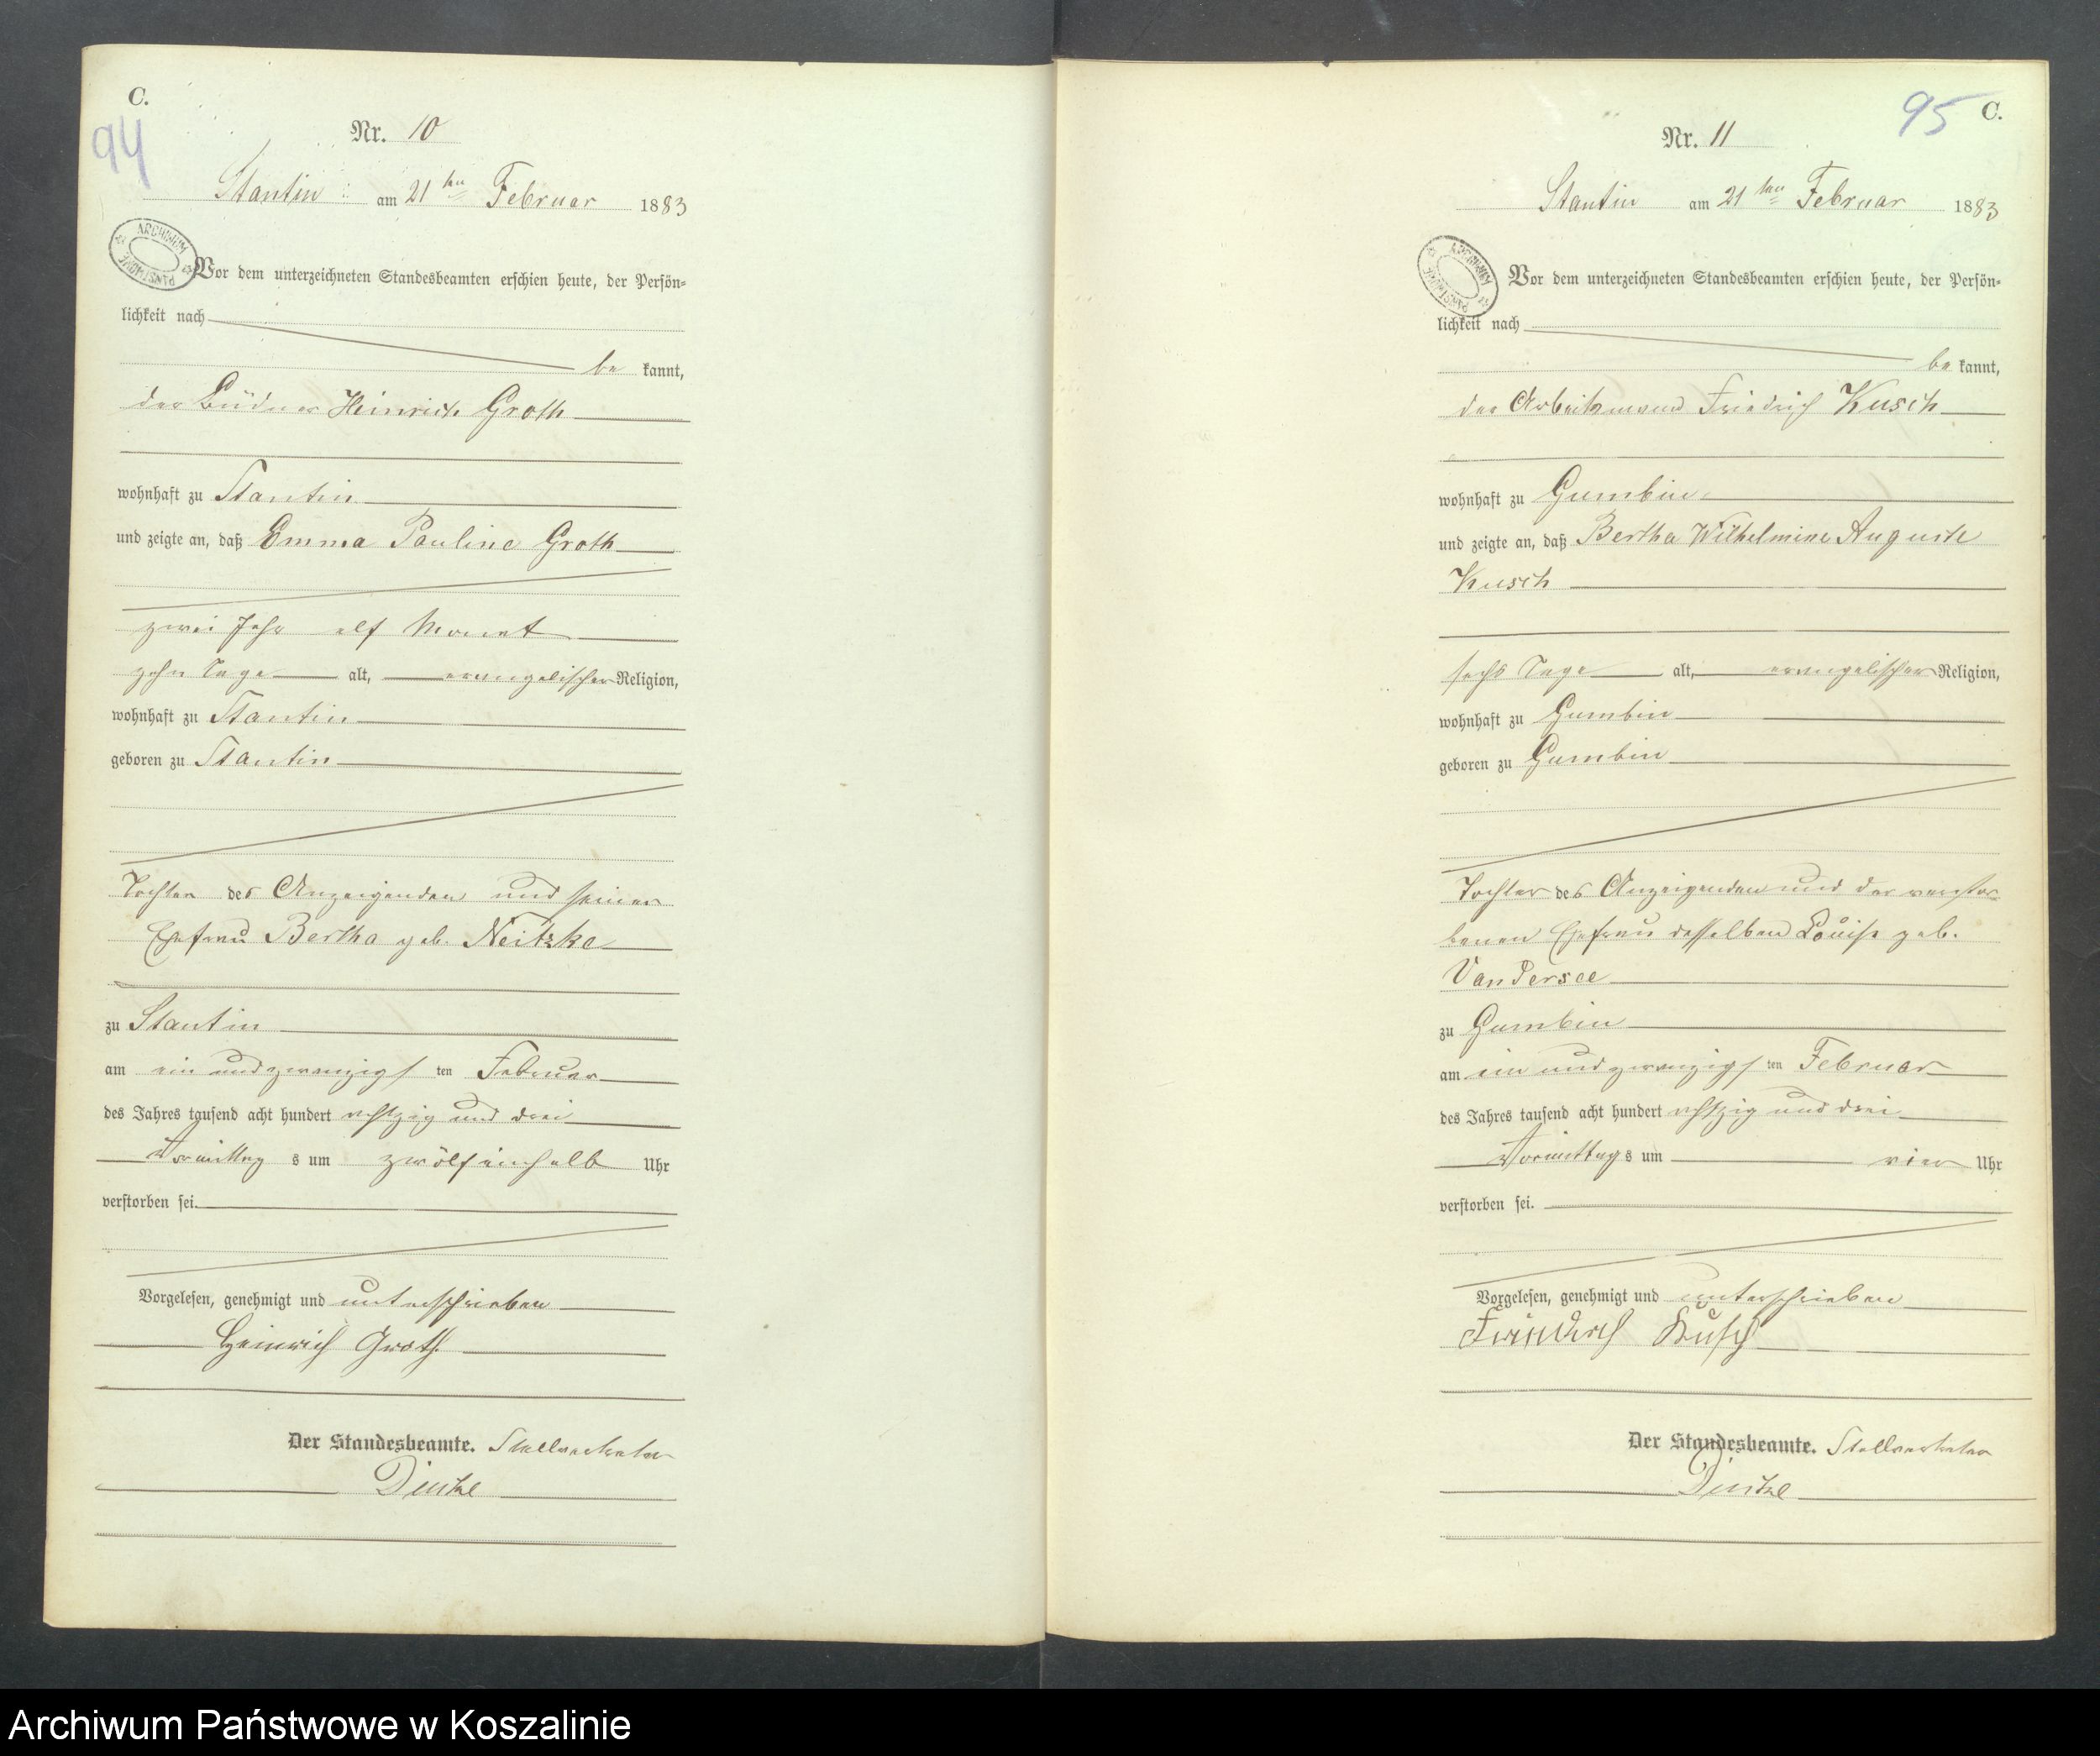 C.
94
Nr. 10
Stantin am 21ten Februar 1883
ARCHIWUM PAŃSTWOWE
Vor dem unterzeichneten Standesbeamten erschien heute, der Persön-
lichkeit nach
be kannt,
der Büdner Heinrich Groth
wohnhaft zu Stantin
und zeigte an, daß Emma Pauline Groth
zwei Jahr elf Monat
zehn Tage alt, evangelischer Religion,
wohnhaft zu Stantin
geboren zu Stantin
Tochter des Anzeigenden und seiner
Ehefrau Bertha geb. Neitzke
zu Stantin
am ein und zwanzigsten Februar
des Jahres tausend acht hundert achtzig und drei
Vormittags um zwölfeinhalb Uhr
verstorben sei.
Vorgelesen, genehmigt und unterschrieben
Heinrich Groth
Der Standesbeamte. Stellvertreter
95
C.
Nr. 11
Stantin am 21ten Februar 1883
ARCHIWUM PAŃSTWOWE
Vor dem unterzeichneten Standesbeamten erschien heute, der Persön-
lichkeit nach
be kannt,
der Arbeitsmann Friedrich Kusch
wohnhaft zu Gumbin
und zeigte an, daß Bertha Wilhelmine Auguste
Kusch
sechs Tage alt, evangelischer Religion,
wohnhaft zu Gumbin
geboren zu Gumbin
Tochter des Anzeigenden und der verstor-
benen Ehefrau desselben Louise geb.
Vandersee
zu Gumbin
am ein und zwanzigsten Februar
des Jahres tausend acht hundert achtzig und drei
Vormittags um vier Uhr
verstorben sei.
Vorgelesen, genehmigt und unterschrieben
Friedrich Kusch
Der Standesbeamte. Stellvertreter
Archiwum Państwowe w Koszalinie